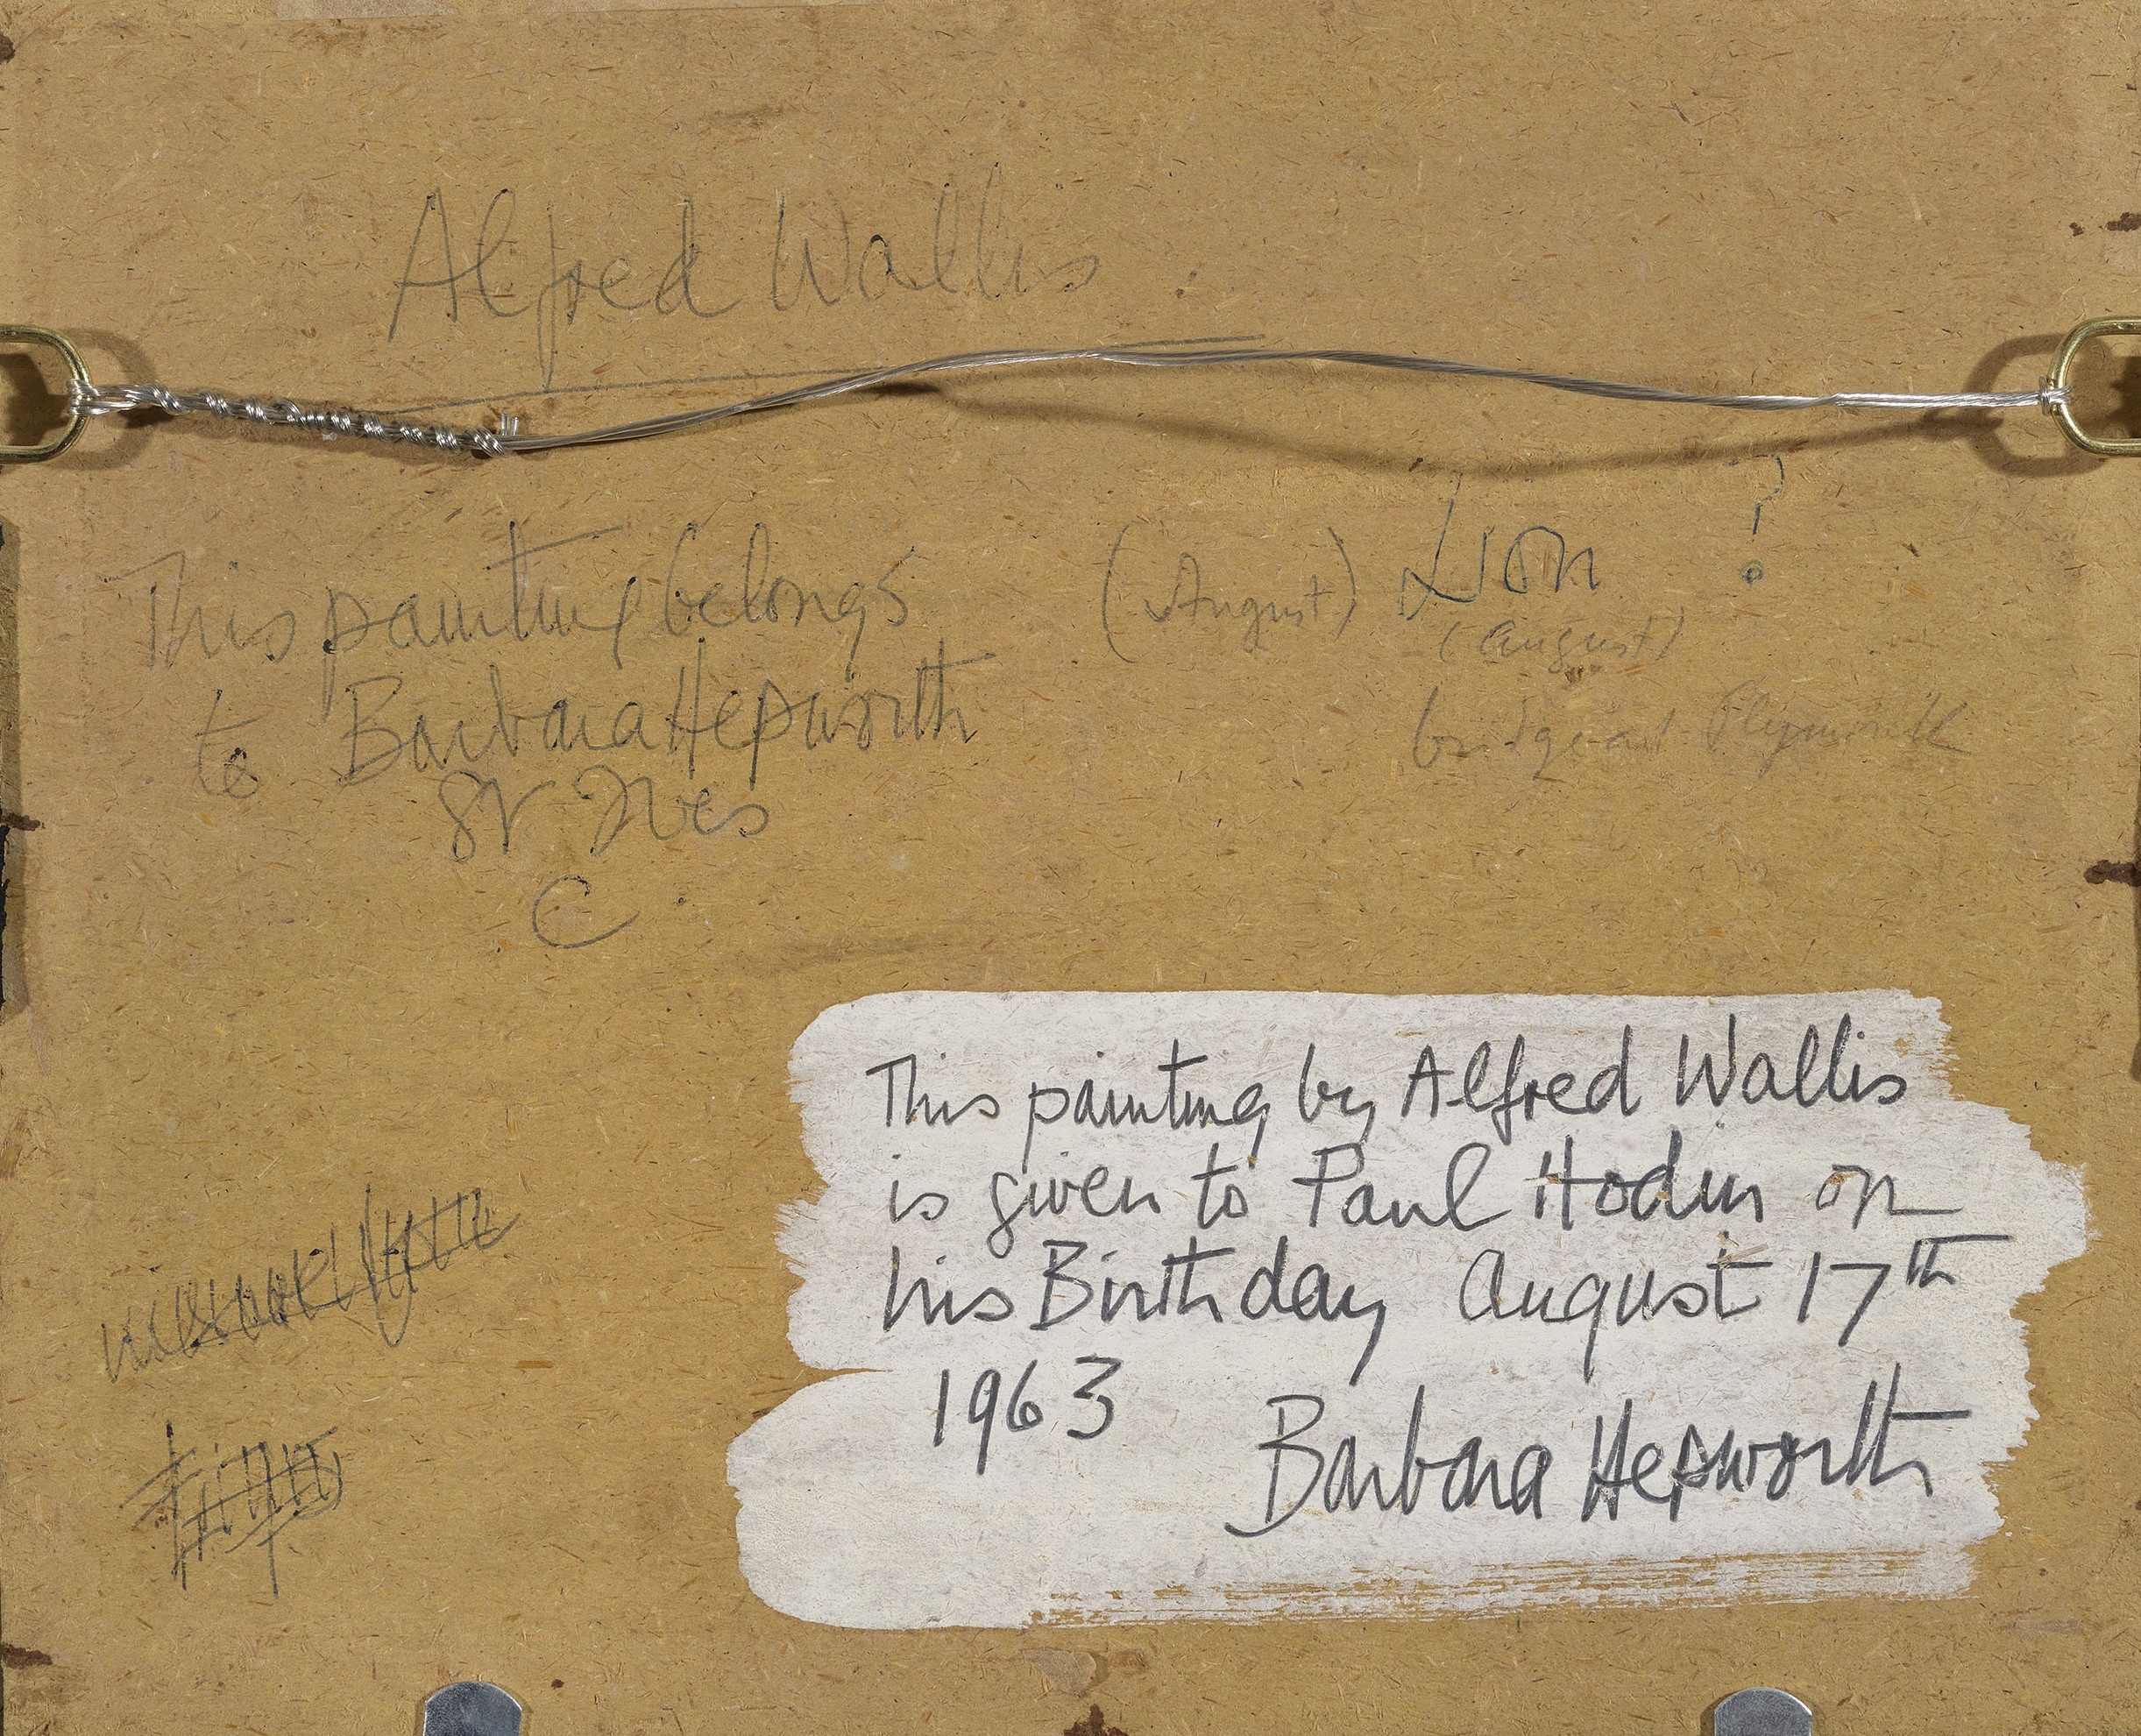 Alfred Wallis
This painting belongs
to Barbara Hepworth
St Ives
C
(August) Lion ?
(August)
bridge at Plymouth
This painting by Alfred Wallis
is given to Paul Hodin on
his Birthday August 17th
1963
Barbara Hepworth